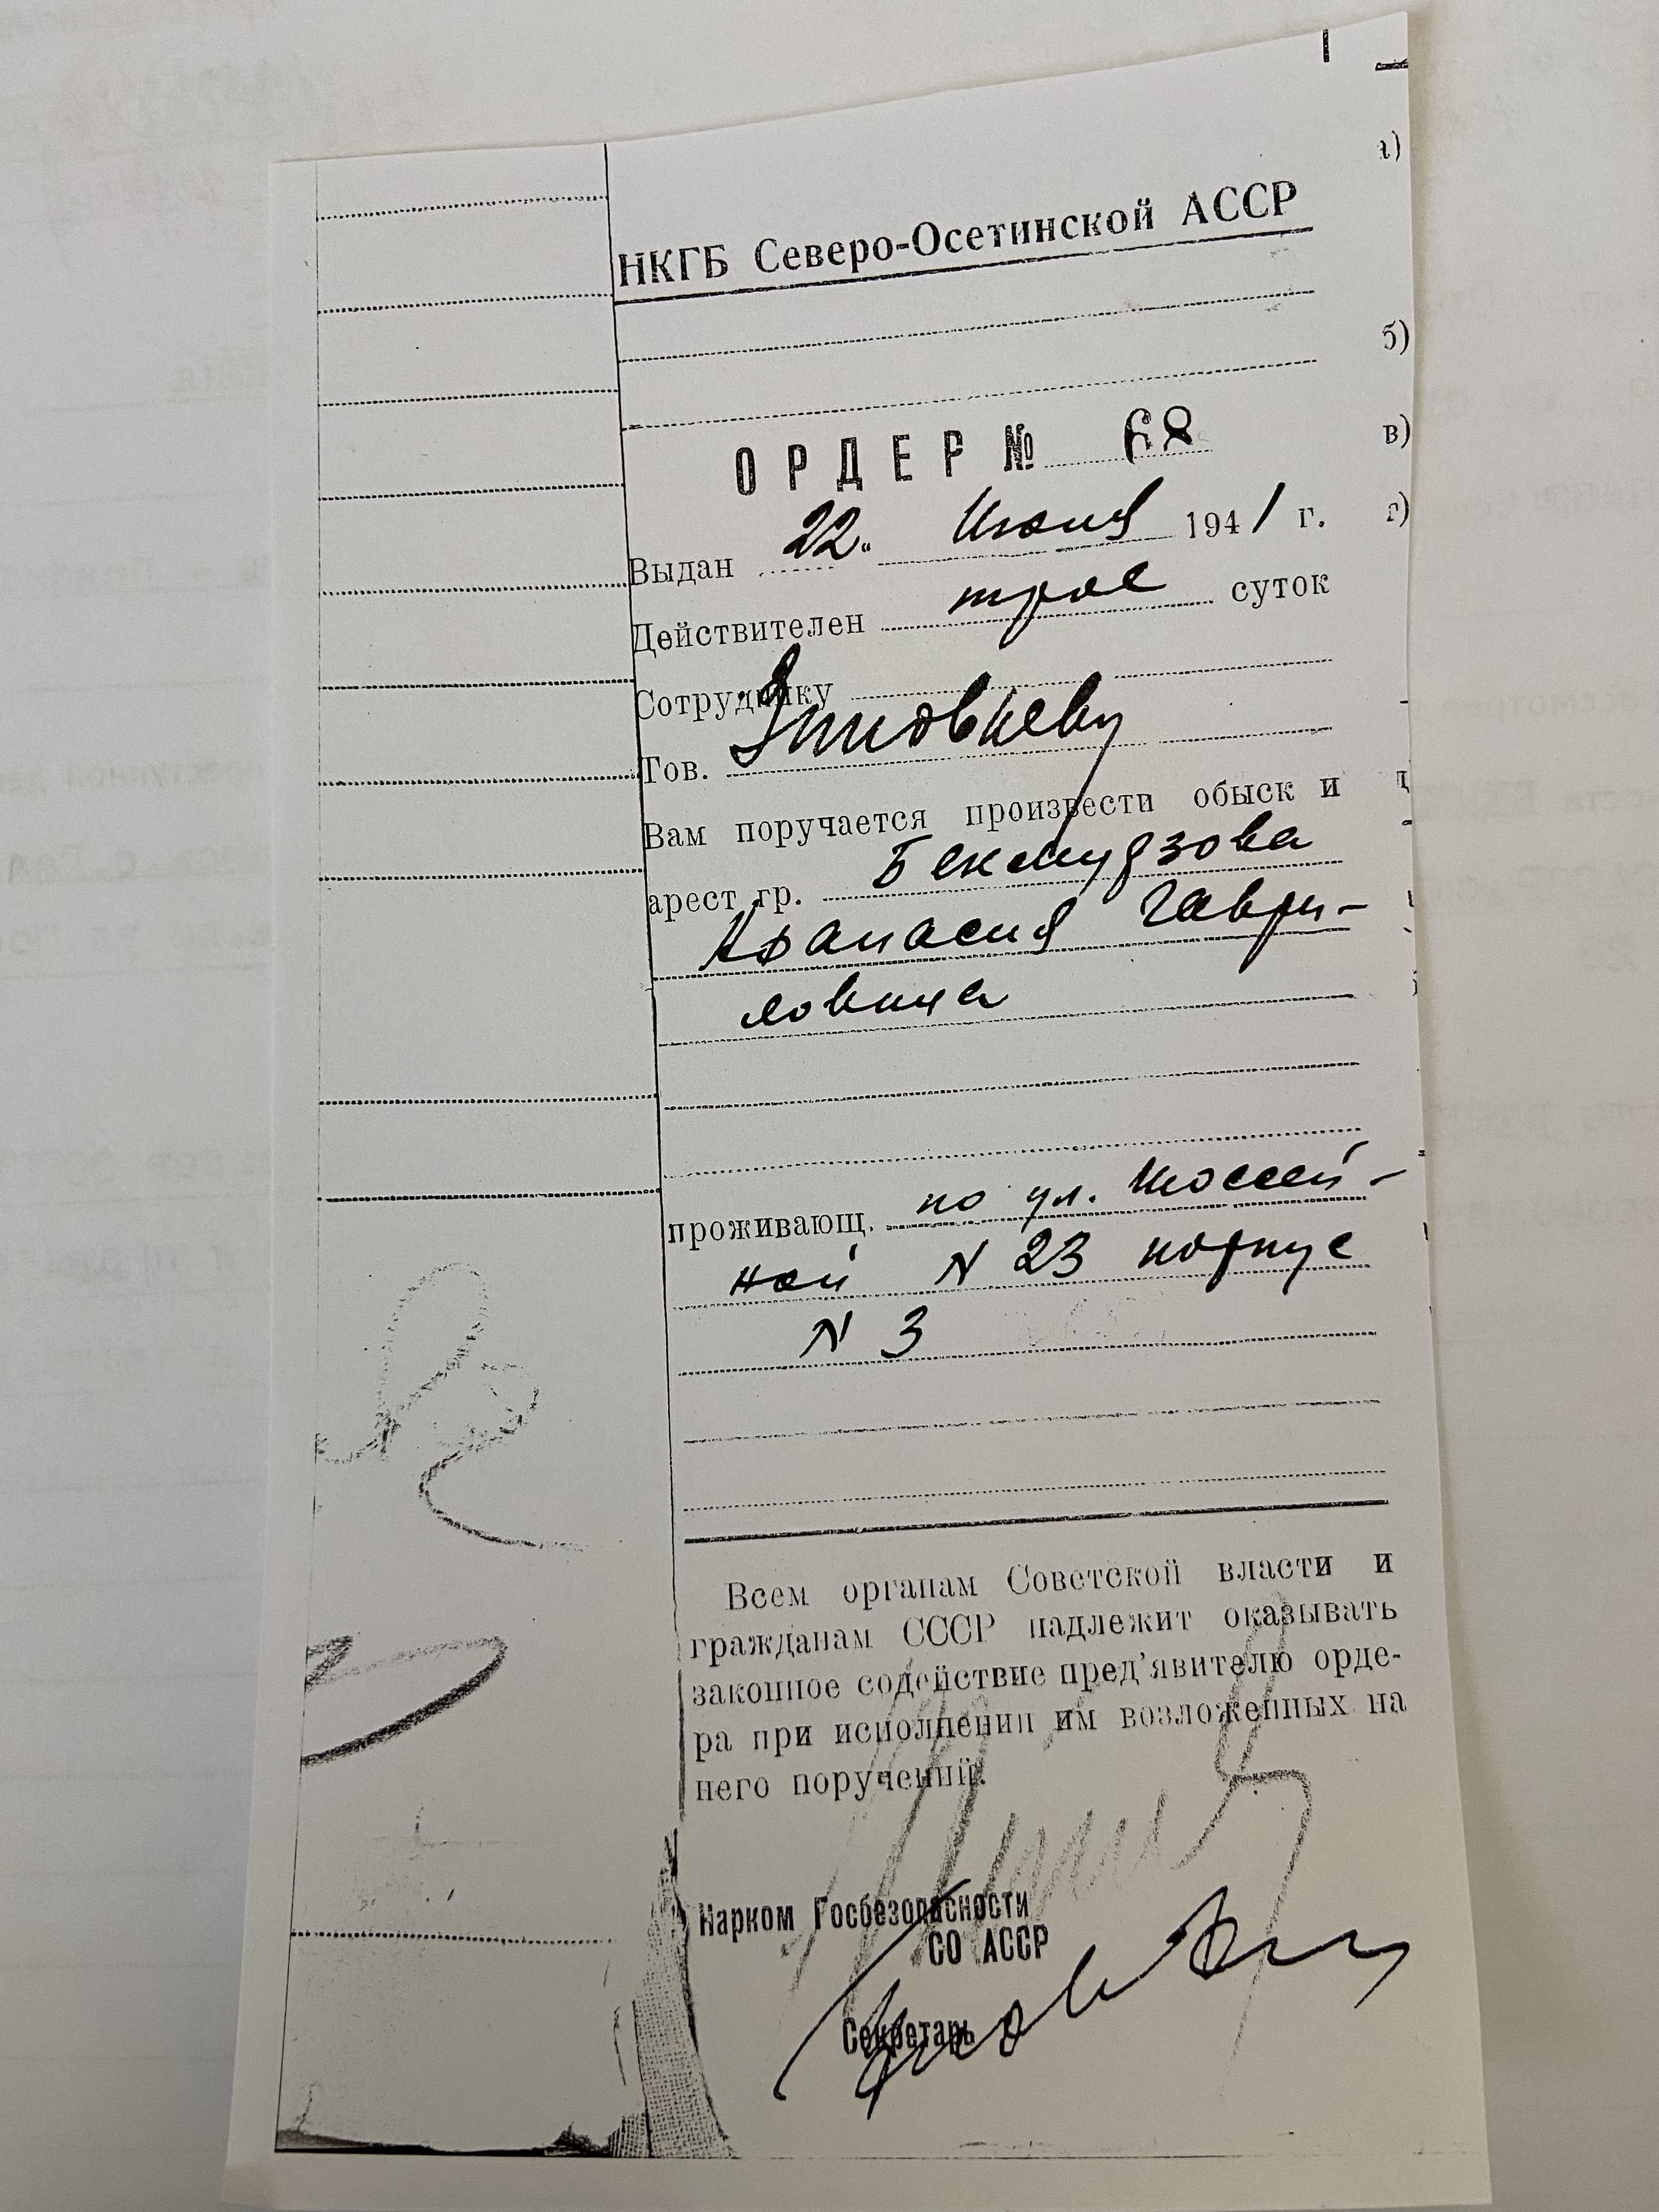 НКГБ Северо-Осетинской АССР
ОРДЕР № 68
Выдан 22 " Июня 1941 г.
Действителен трое суток
Сотруднику
Тов.
Вам поручается произвести обыск и
арест гр. Бекмурзова
Афанасия Гаври-
ловича
проживающ. по ул. Шоссей-
ной N 23 корпус
N 3
Всем органам Советской власти и
гражданам СССР надлежит оказывать
законное содействие пред'явителю орде-
ра при исполнении им возложенных на
него поручений.
Нарком Госбезопасности
СО АССР
Секретарь
а)
б)
в)
г)